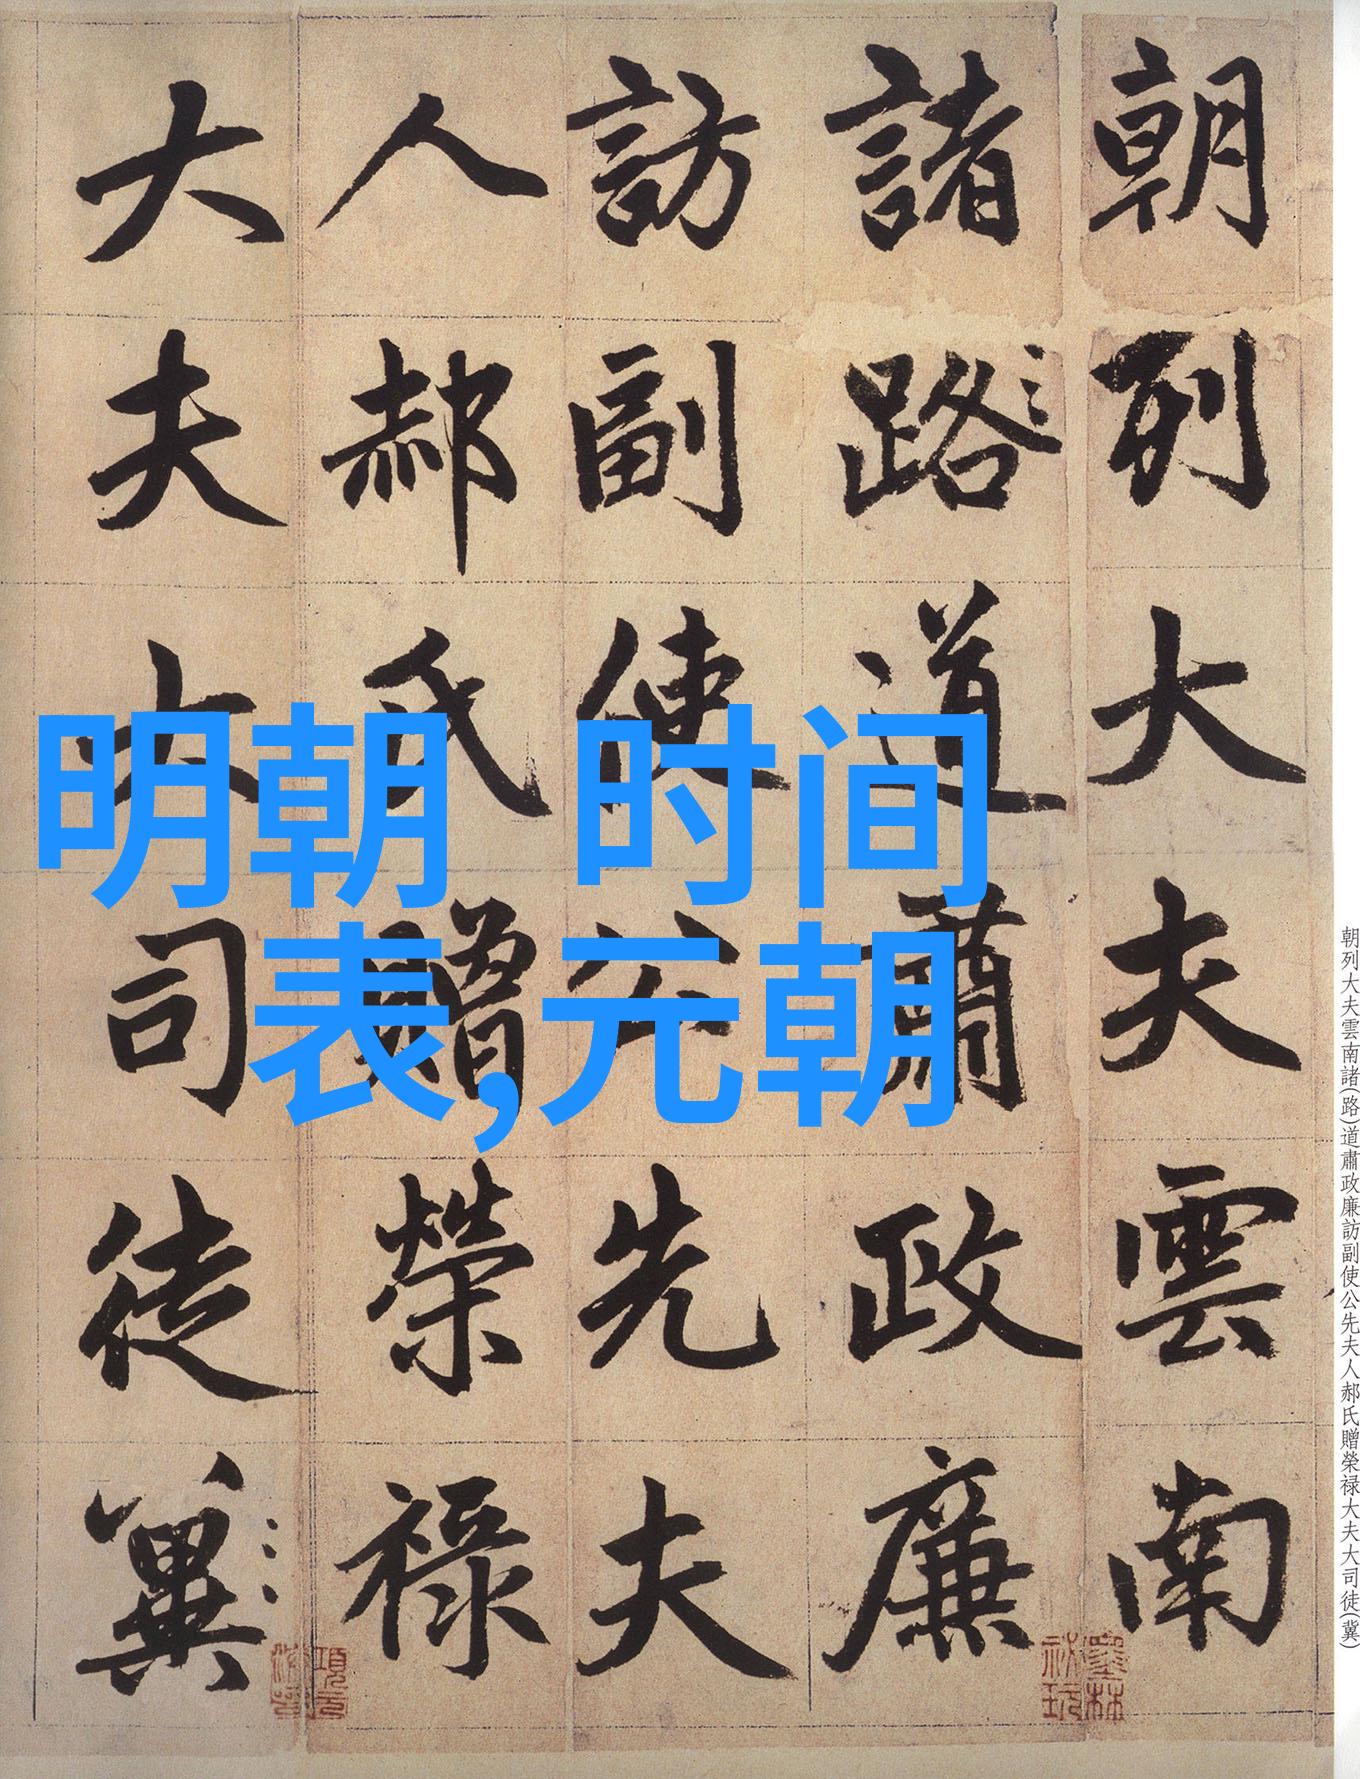 朝列大夫雲南
諸路道肅政廉
訪副使公先夫
人郝氏贈榮禄
大夫大司徒冀
明朝 时间
表,元朝
朝列大夫雲南諸(路)道肅政廉訪副使公先夫人郝氏贈榮禄大夫大司徒(冀)